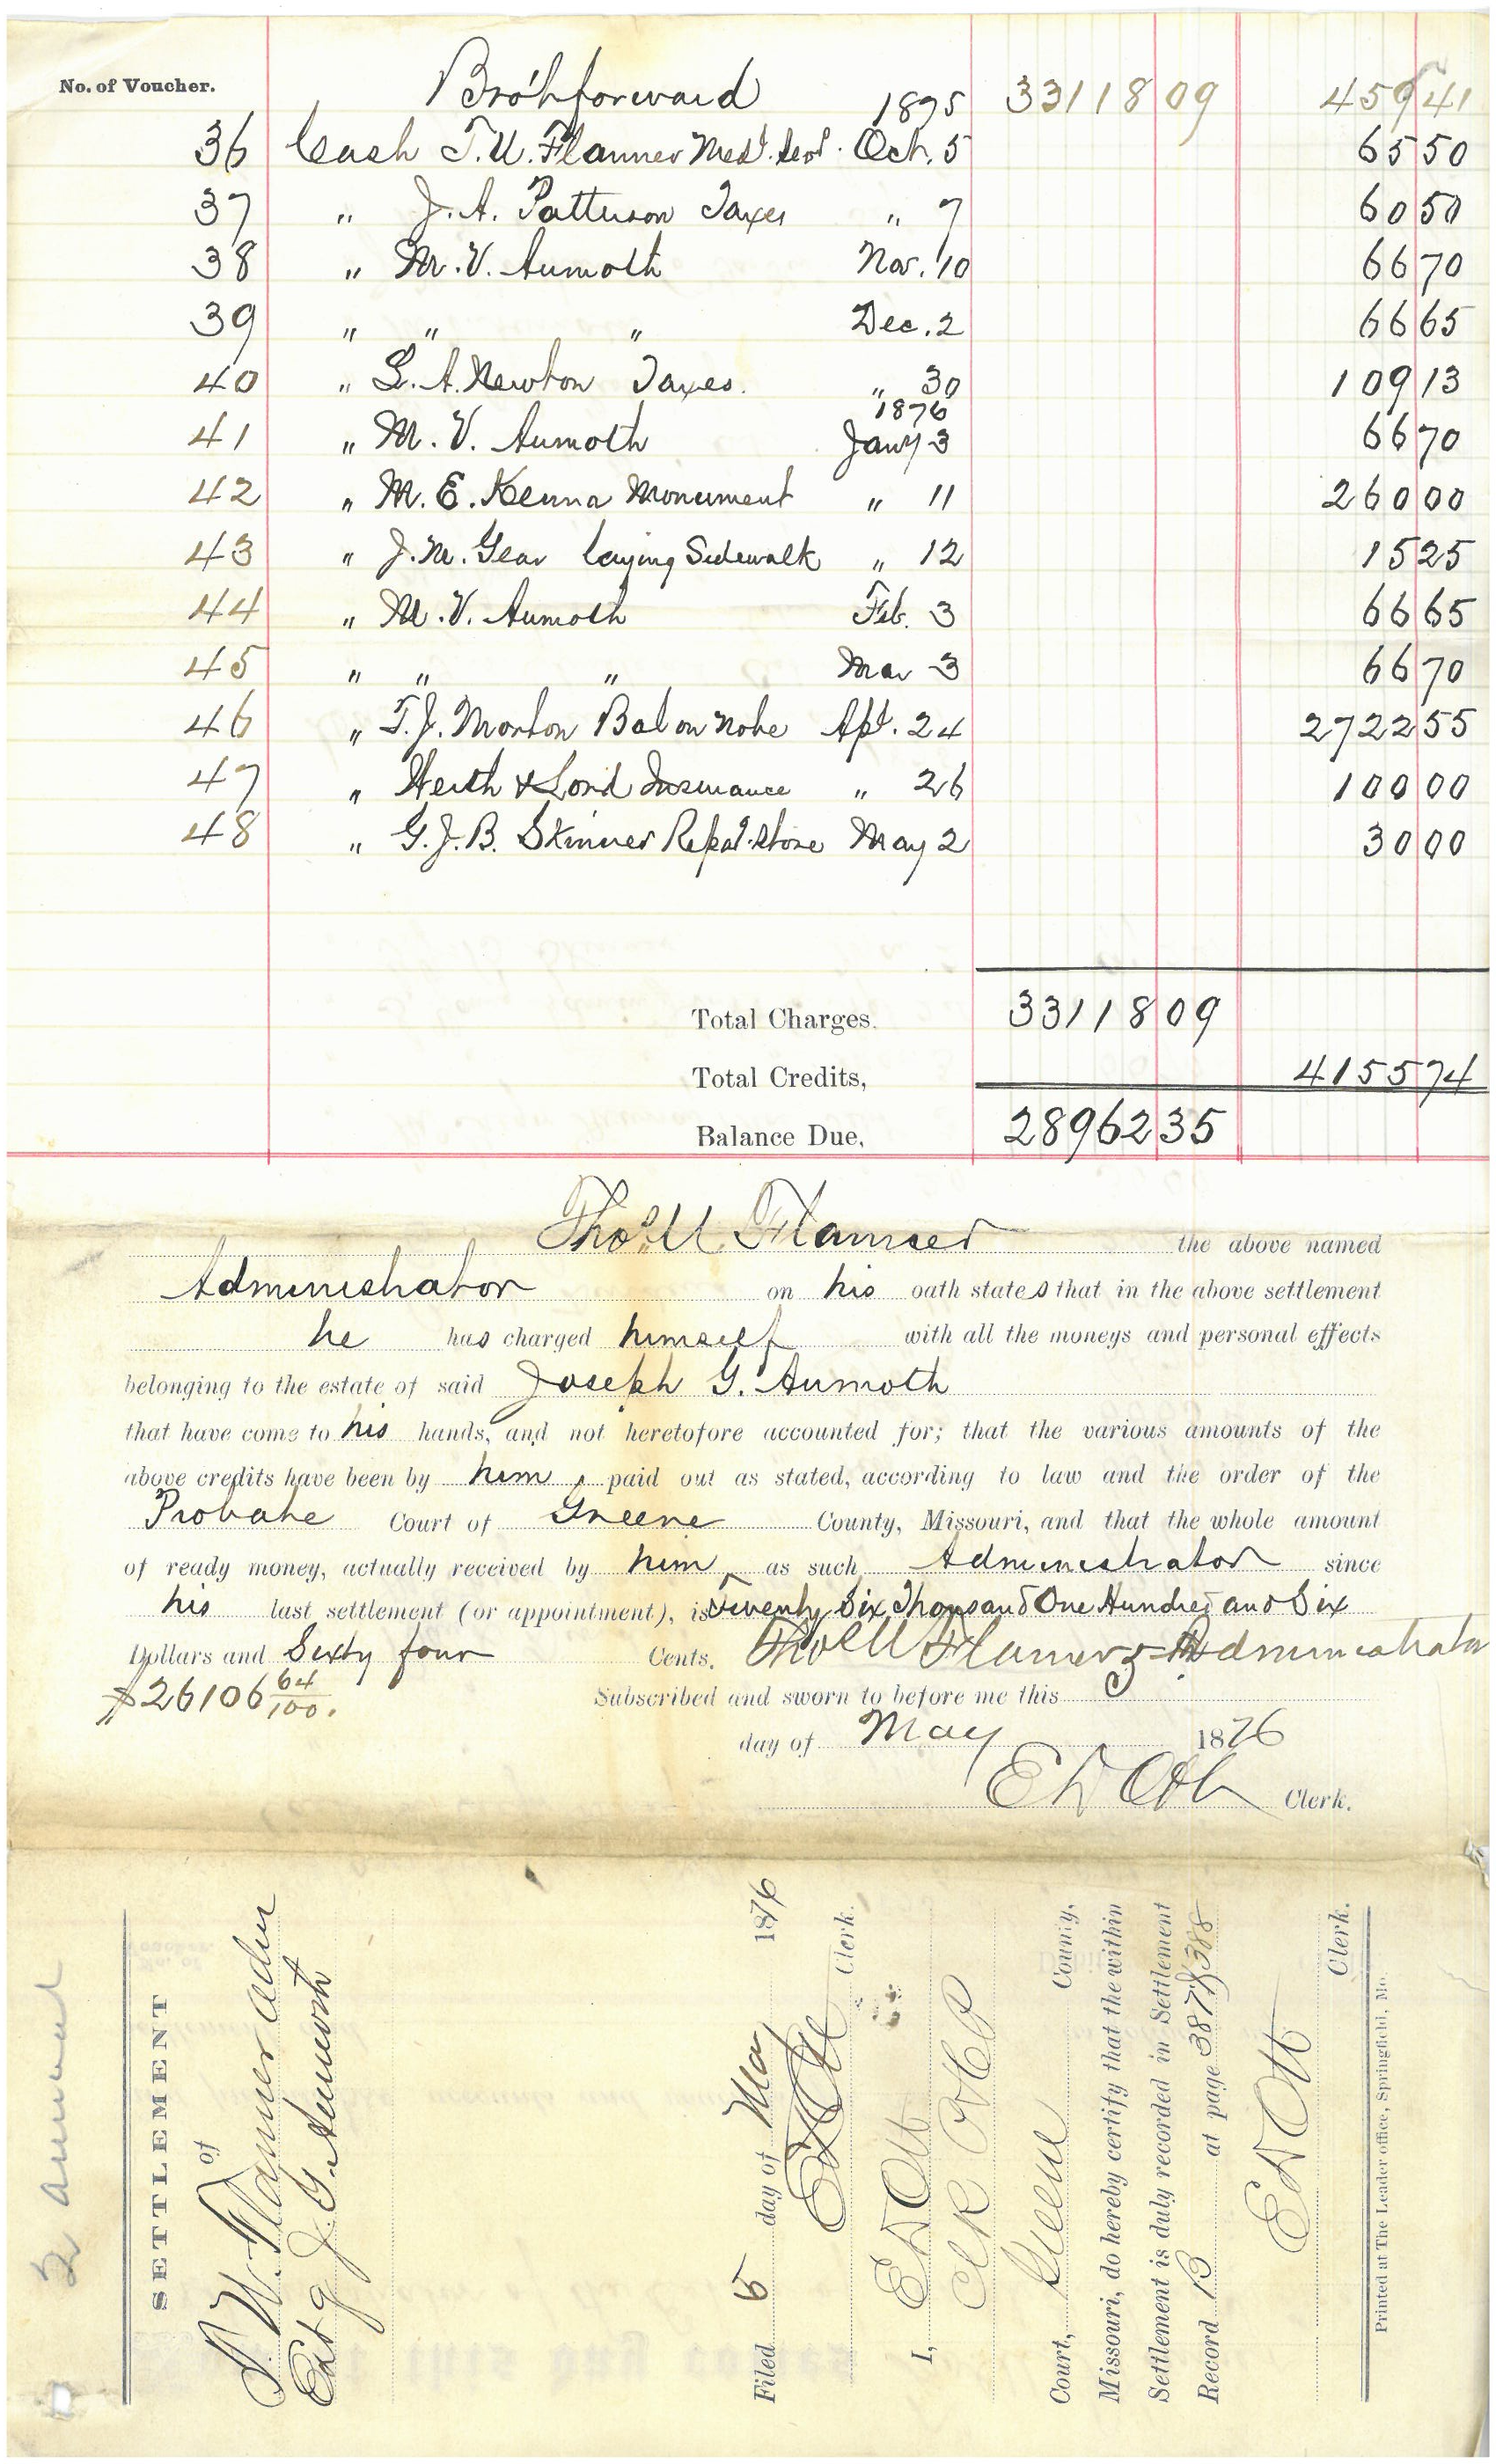 No. of Voucher. Bro't forward 1875 33118 09 459 41
36 Cash T. U. Flanner Med. Oct. 5 65 50
37 " J. A. Patterson Taxes " 7 60 50
38 " M. V. Aumoth Nov. 10 66 70
39 " " " Dec. 2 66 65
40 " L. A. Newton Taxes. " 30 109 13
1876
41 " M. V. Aumoth Jany 3 66 70
42 " M. E. Kenna Monument " 11 260 00
43 " J. M. Gear laying Sidewalk " 12 15 25
44 " M. V. Aumoth Feb. 3 66 65
45 " " " Mar 3 66 70
46 " T. J. Morton Bal on note Apl. 24 2722 55
47 " & Lord Insurance " 26 100 00
48 " G. J. B. Skinner store May 2 30 00
Total Charges. 33118 09
Total Credits, 4155 74
Balance Due, 28962 35
Thos. U Flanner the above named
Administrator on his oath states that in the above settlement
he has charged himself with all the moneys and personal effects
belonging to the estate of said Joseph G. Aumoth
that have come to his hands, and not heretofore accounted for; that the various amounts of the
above credits have been by him, paid out as stated, according to law and the order of the
Probate Court of Greene County, Missouri, and that the whole amount
of ready money, actually received by him as such Administrator since
his last settlement (or appointment), is Twenty Six Thousand One Hundred and Six
Dollars and Sixty four Cents. Thos U Flanner Administrator
$26106 64/100. Subscribed and sworn to before me this 5
day of May 1876
E D Ott Clerk.
2 annual
SETTLEMENT
of
T. U. Flanner adm
Est of J. G. Aumoth
Filed 5 day of May 1876
E D Ott Clerk.
I, E D Ott
Clk
Court, Greene County,
Missouri, do hereby certify that the within
Settlement is duly recorded in Settlement
Record B at page 387 & 388
E D Ott
Clerk.
Printed at The Leader office, Springfield, Mo.